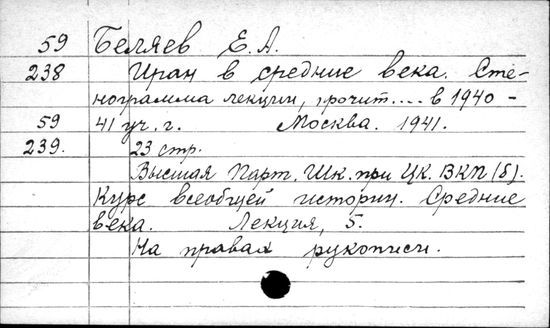 59 Беляев Е.А.
238 Иран в средние века. Сте-
нограмма лекции, прочит.... в 1940-
59 41 уч. г. Москва. 1941.
239. 23 стр.
Высшая Парт. Шк. при ЦК. ВКП(б).
Курс всеобщей истории. Средние
века. Лекция, 5.
На правах рукописи.